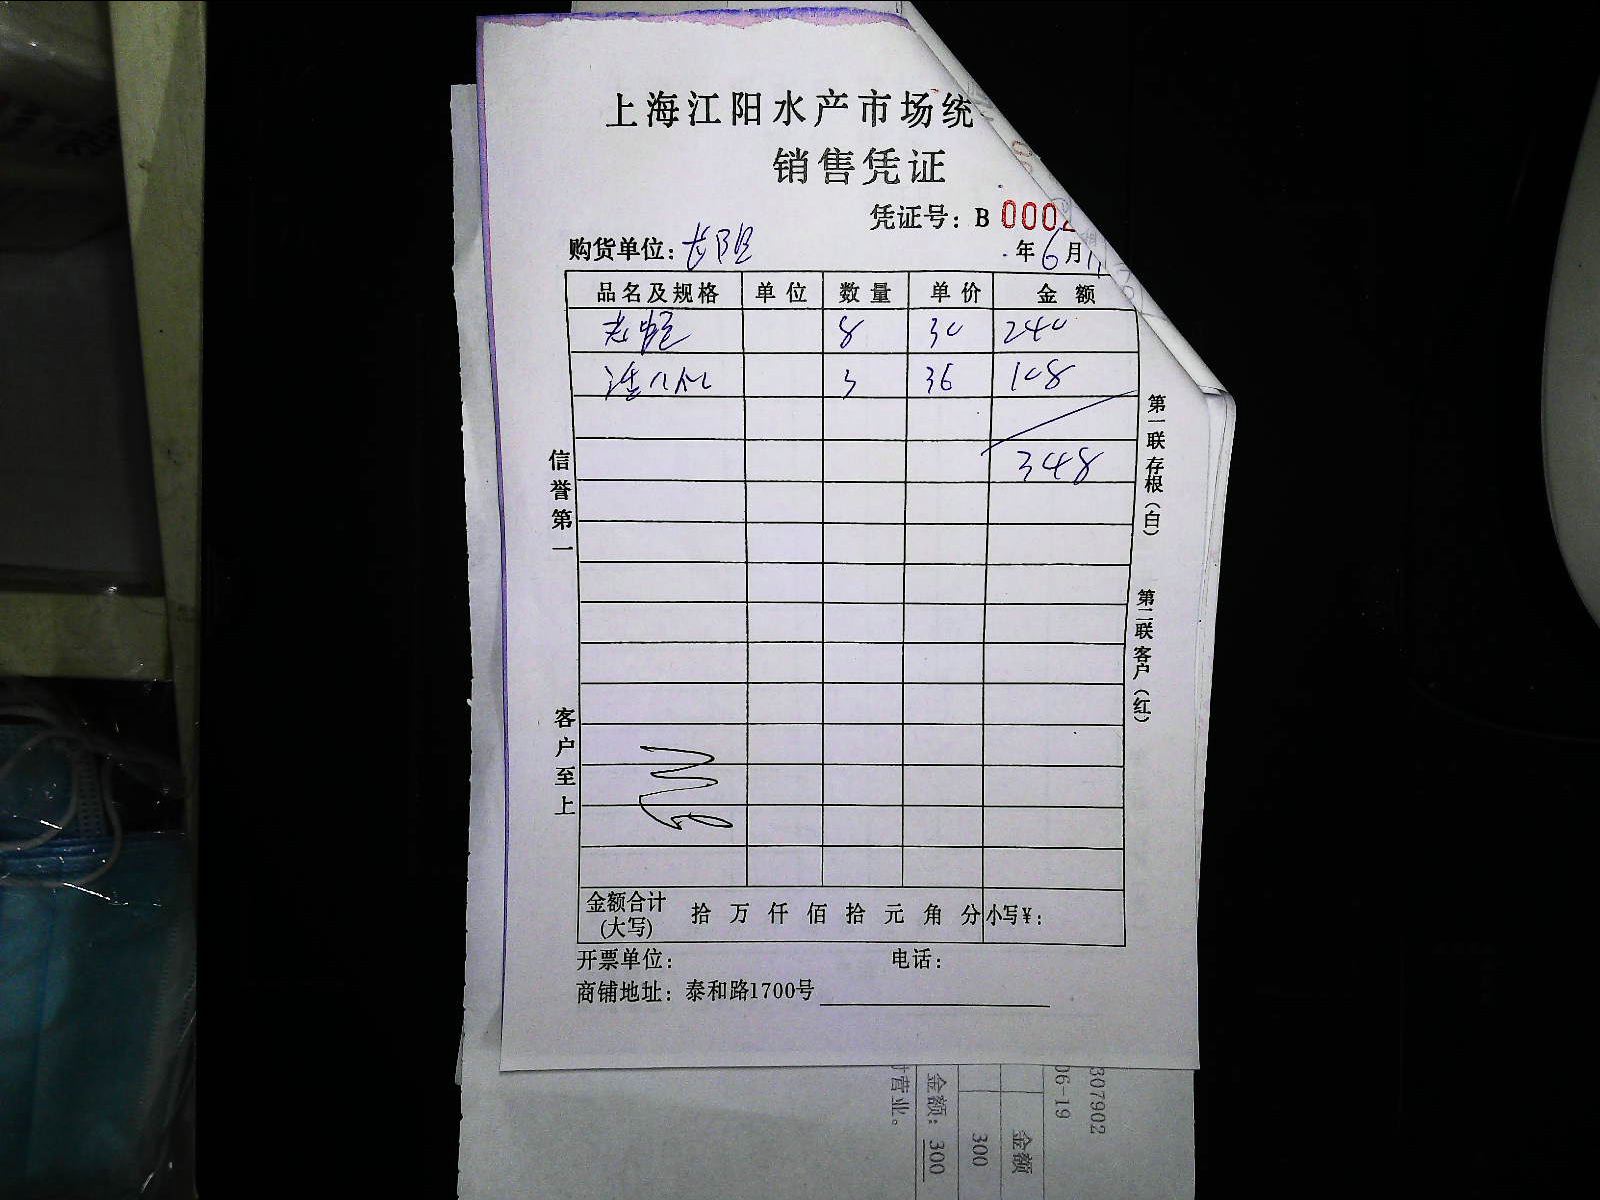 上海江阳水产市场统
销售凭证
凭证号：B 0002
购货单位：长阳
年6月11
品名及规格 单位 数量 单价 金额
8 30 240
3 36 108
348
信誉第一
客户至上
第一联存根（白）
第二联客户（红）
金额合计（大写） 拾 万 仟 佰 拾 元 角 分 小写￥：
开票单位： 电话：
商铺地址：泰和路1700号
307902
06-19
金额
300
金额：300
营业。